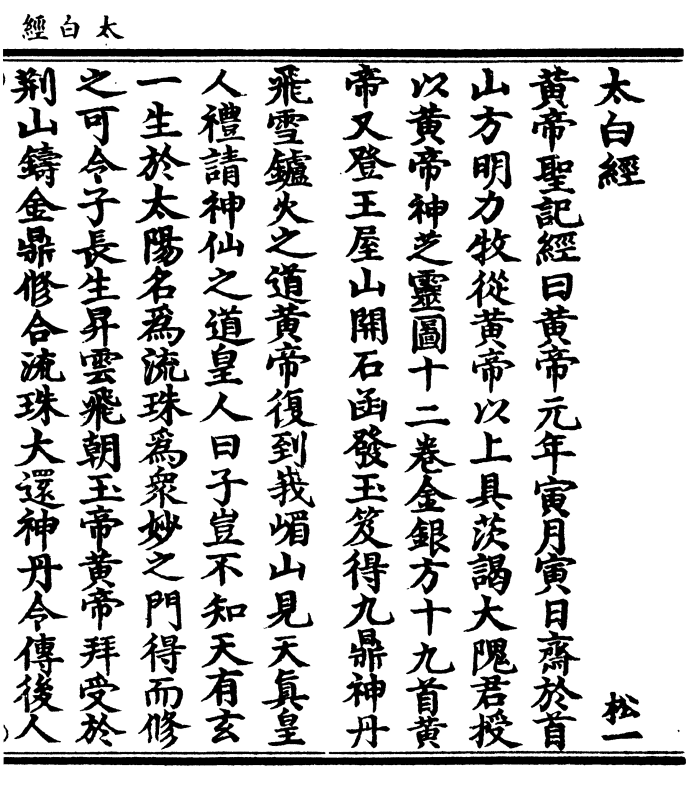 太白經
太白經 松一
黃帝聖記經曰黃帝元年寅月寅日齋於首
山方明力牧從黃帝以上具茨謁大隗君授
以黃帝神芝靈圖十二卷金銀方十九首黃
帝又登王屋山開石函發玉笈得九鼎神丹
飛雪鑪火之道黃帝復到峩嵋山見天眞皇
人禮請神仙之道皇人曰子豈不知天有玄
一生於太陽名爲流珠爲衆妙之門得而修
之可令子長生昇雲飛朝玉帝黃帝拜受於
荆山鑄金鼎修合流珠大還神丹令傳後人